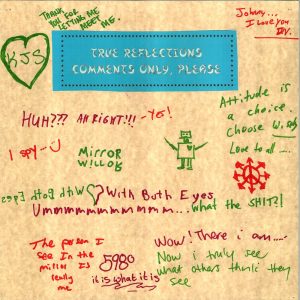 THANK
YOU FOR
LETTING ME
MEET
ME.
Johnny...
I Love you
KJS
TRUE REFLECTIONS
COMMENTS ONLY, PLEASE
Attitude is
a choice.
choose
Love to all
HUH??? AH RIGHT!!! - YES!
I spy
MIRROR
With Both Eyes
With Both Eyes
Ummmmmmmmmmmm... what the SHIT?!
The person I
see In the
mirror Is
really
me
5980
it is what it is
Wow! There i am.....
Now i truly see
what others think they
see